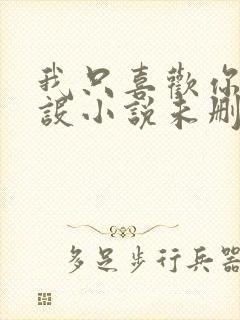 我只喜歡你
設小說未刪
多足步行兵器